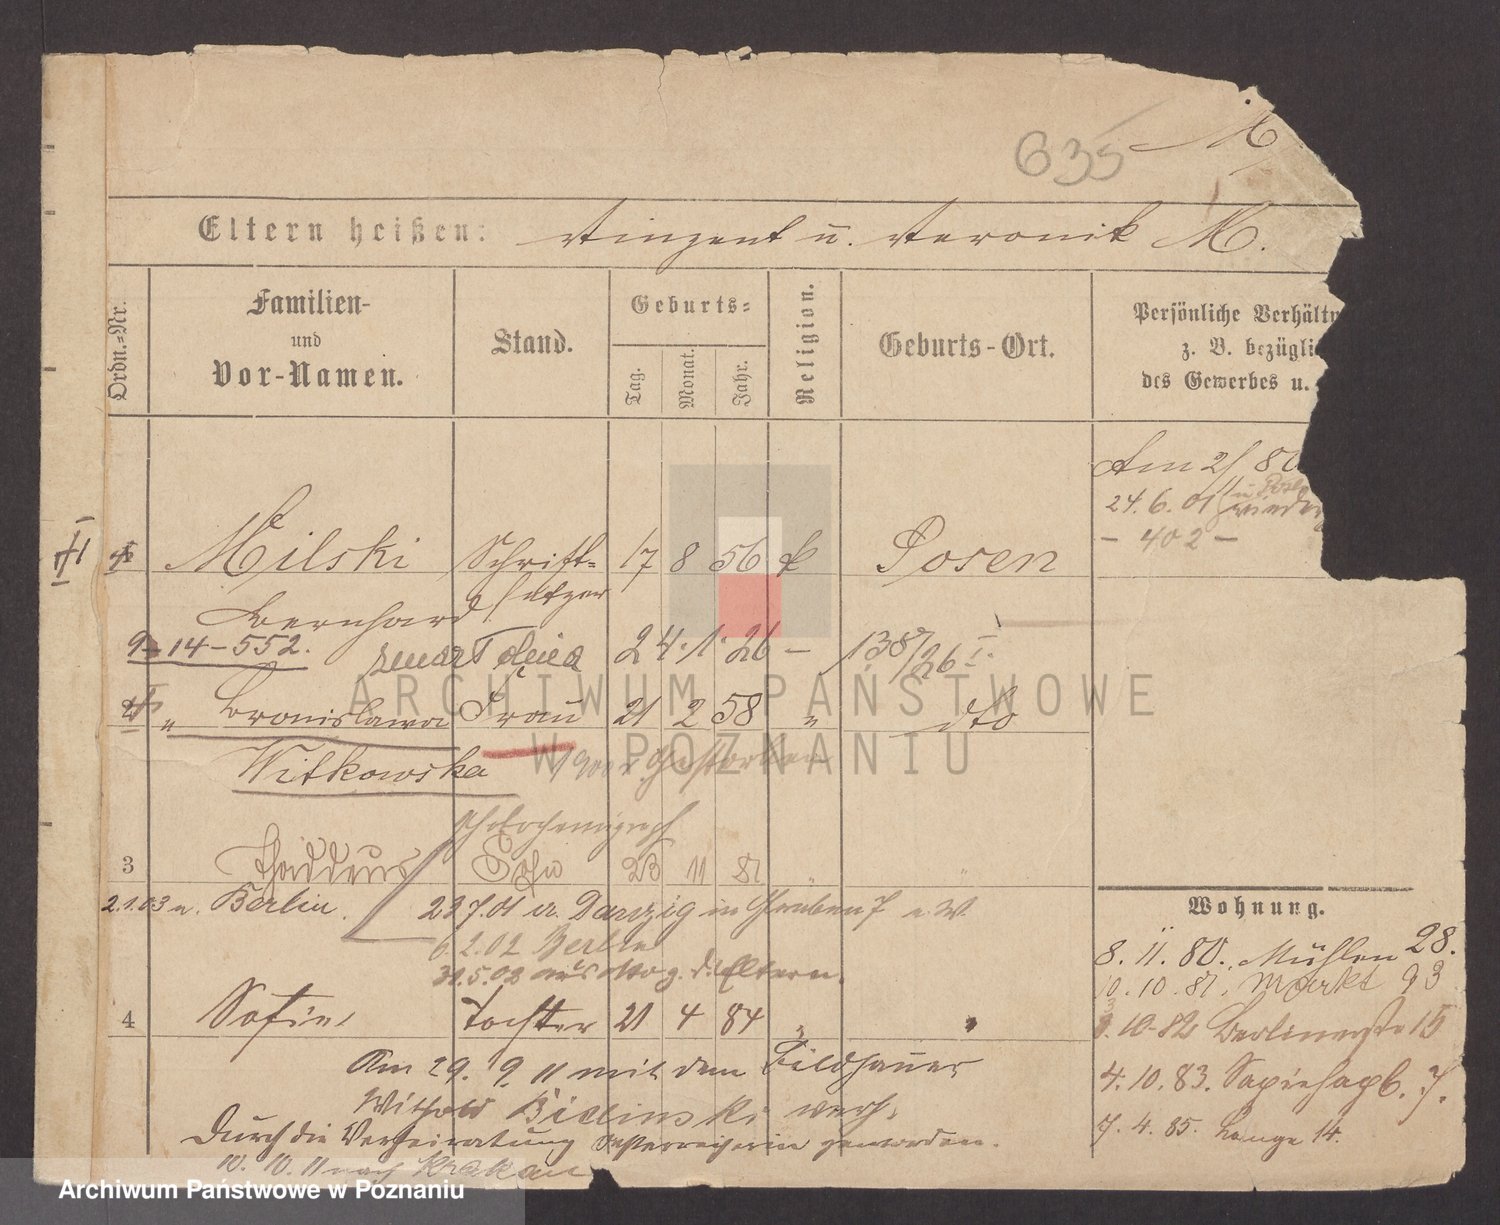 635 M
Eltern heißen: Vinzent u. Veronik M.
Ordn.-Nr.
Familien-
und
Vor-Namen.
Stand.
Geburts-
Tag.
Monat.
Jahr.
Religion.
Geburts-Ort.
Persönliche Verhältn
z. B. bezügli
des Gewerbes u.
Am 2/ 80
24. 6. 01
- 402 -
Milski Schrift- 17 8 56 k Posen
Bernhard setzer
9-14-552. zmarł dnia 24. 1. 26 - 1387/26 I.
" Bronislawa Frau 21 2 58 " dto
Witkowska gestorben
3 Thaddeus Sohn 23 11 81
2.1.03 n. Berlin. 23 7.01 n. Danzig in
6.2.02 Berlin
31.5.08 aus d. Eltern.
4 Sofie, Tochter 21 4 84 "
Am 29. 9. 11 mit dem Bildhauer
Withold Bielinski verh.
Durch die Verheiratung Österreicherin geworden.
10. 10. 11 nach Krakau
Wohnung.
8. 11. 80. Mühlen 28.
10. 10. 81. Markt 93
3. 10-82 Berlinerstr 15
4. 10. 83. Sapiehapl. 7.
7. 4. 85. Lange 14.
ARCHIWUM PAŃSTWOWE
W POZNANIU
Archiwum Państwowe w Poznaniu